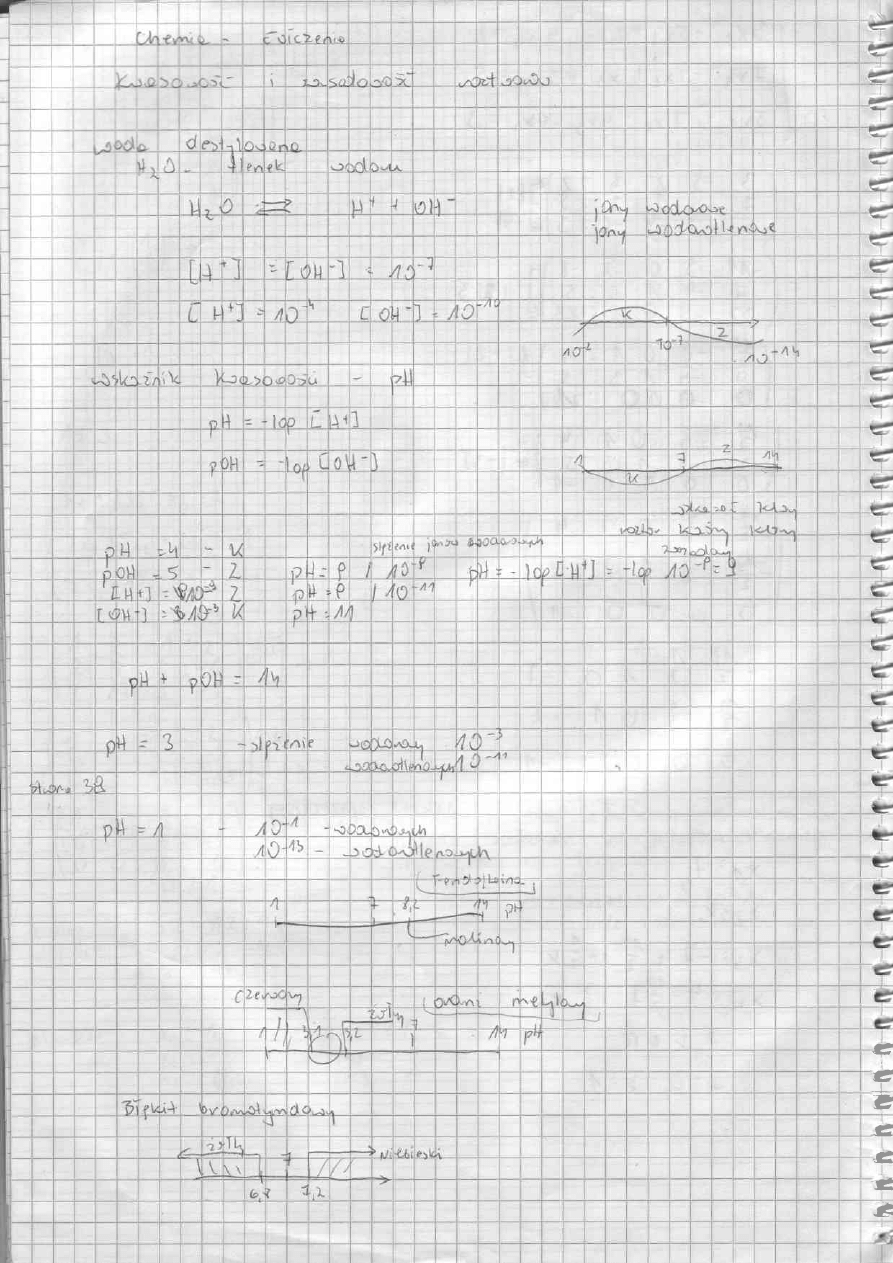 Chemia - ćwiczenia
Kwasowość i zasadowość roztworów
woda destylowana
H₂O - tlenek wodoru
H₂O ⇌ H⁺ + OH⁻
jony wodorowe
jony wodorotlenowe
[H⁺] = [OH⁻] = 10⁻⁷
[H⁺] = 10⁻⁴ [OH⁻] = 10⁻¹⁰
K
Z
10⁻⁷ 10⁻¹⁴
wskaźnik kwasowości - pH
pH = -log [H+]
pOH = -log [OH⁻]
1 7 Z 14
K
pH = 4 - K
stężenie jonów wodorowych
pOH = 5 - Z
pH = 9 / 10⁻⁹
pH = -log [H⁺] = -log 10⁻⁹ = 9
[H+] = 10⁻⁹ Z
pH = 9 / 10⁻¹¹
[OH⁻] = 10⁻⁹ K
pH = 11
pH + pOH = 14
pH = 3 - stężenie wodorowy 10⁻³
wodorotlenowych 10⁻¹¹
strona 38
pH = 1 - 10⁻¹ - wodorowych
10⁻¹³ - wodorotlenowych
Fenoloftaleina
1 7 8,2 14 pH
malinowy
czerwony
żółty
oranż metylowy
1 3,1 7 14 pH
Błękit bromotymolowy
żółty 7 niebieski
6,8 7,2